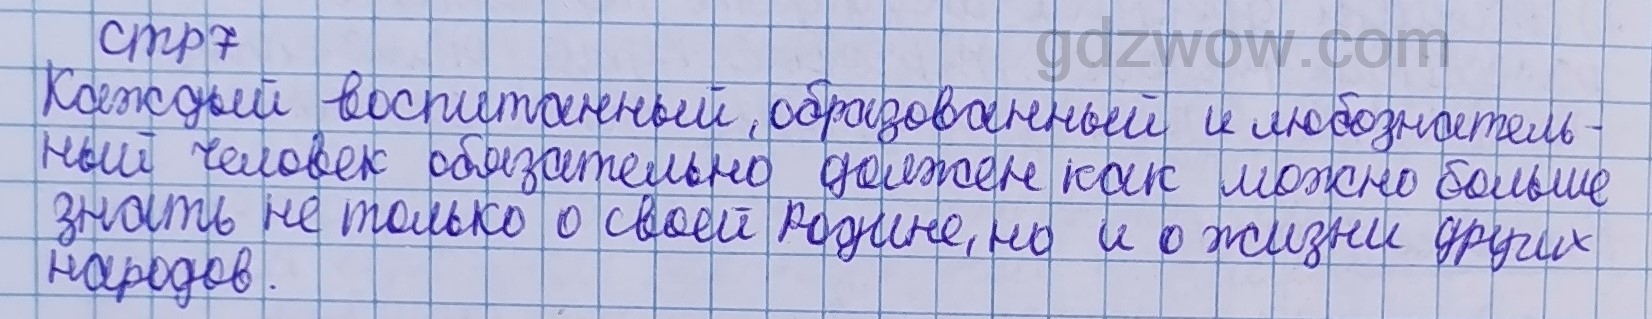 стр7
gdzwow.com
Каждый воспитанный, образованный и любознатель-
ный человек обязательно должен как можно больше
знать не только о своей Родине, но и о жизни других
народов.